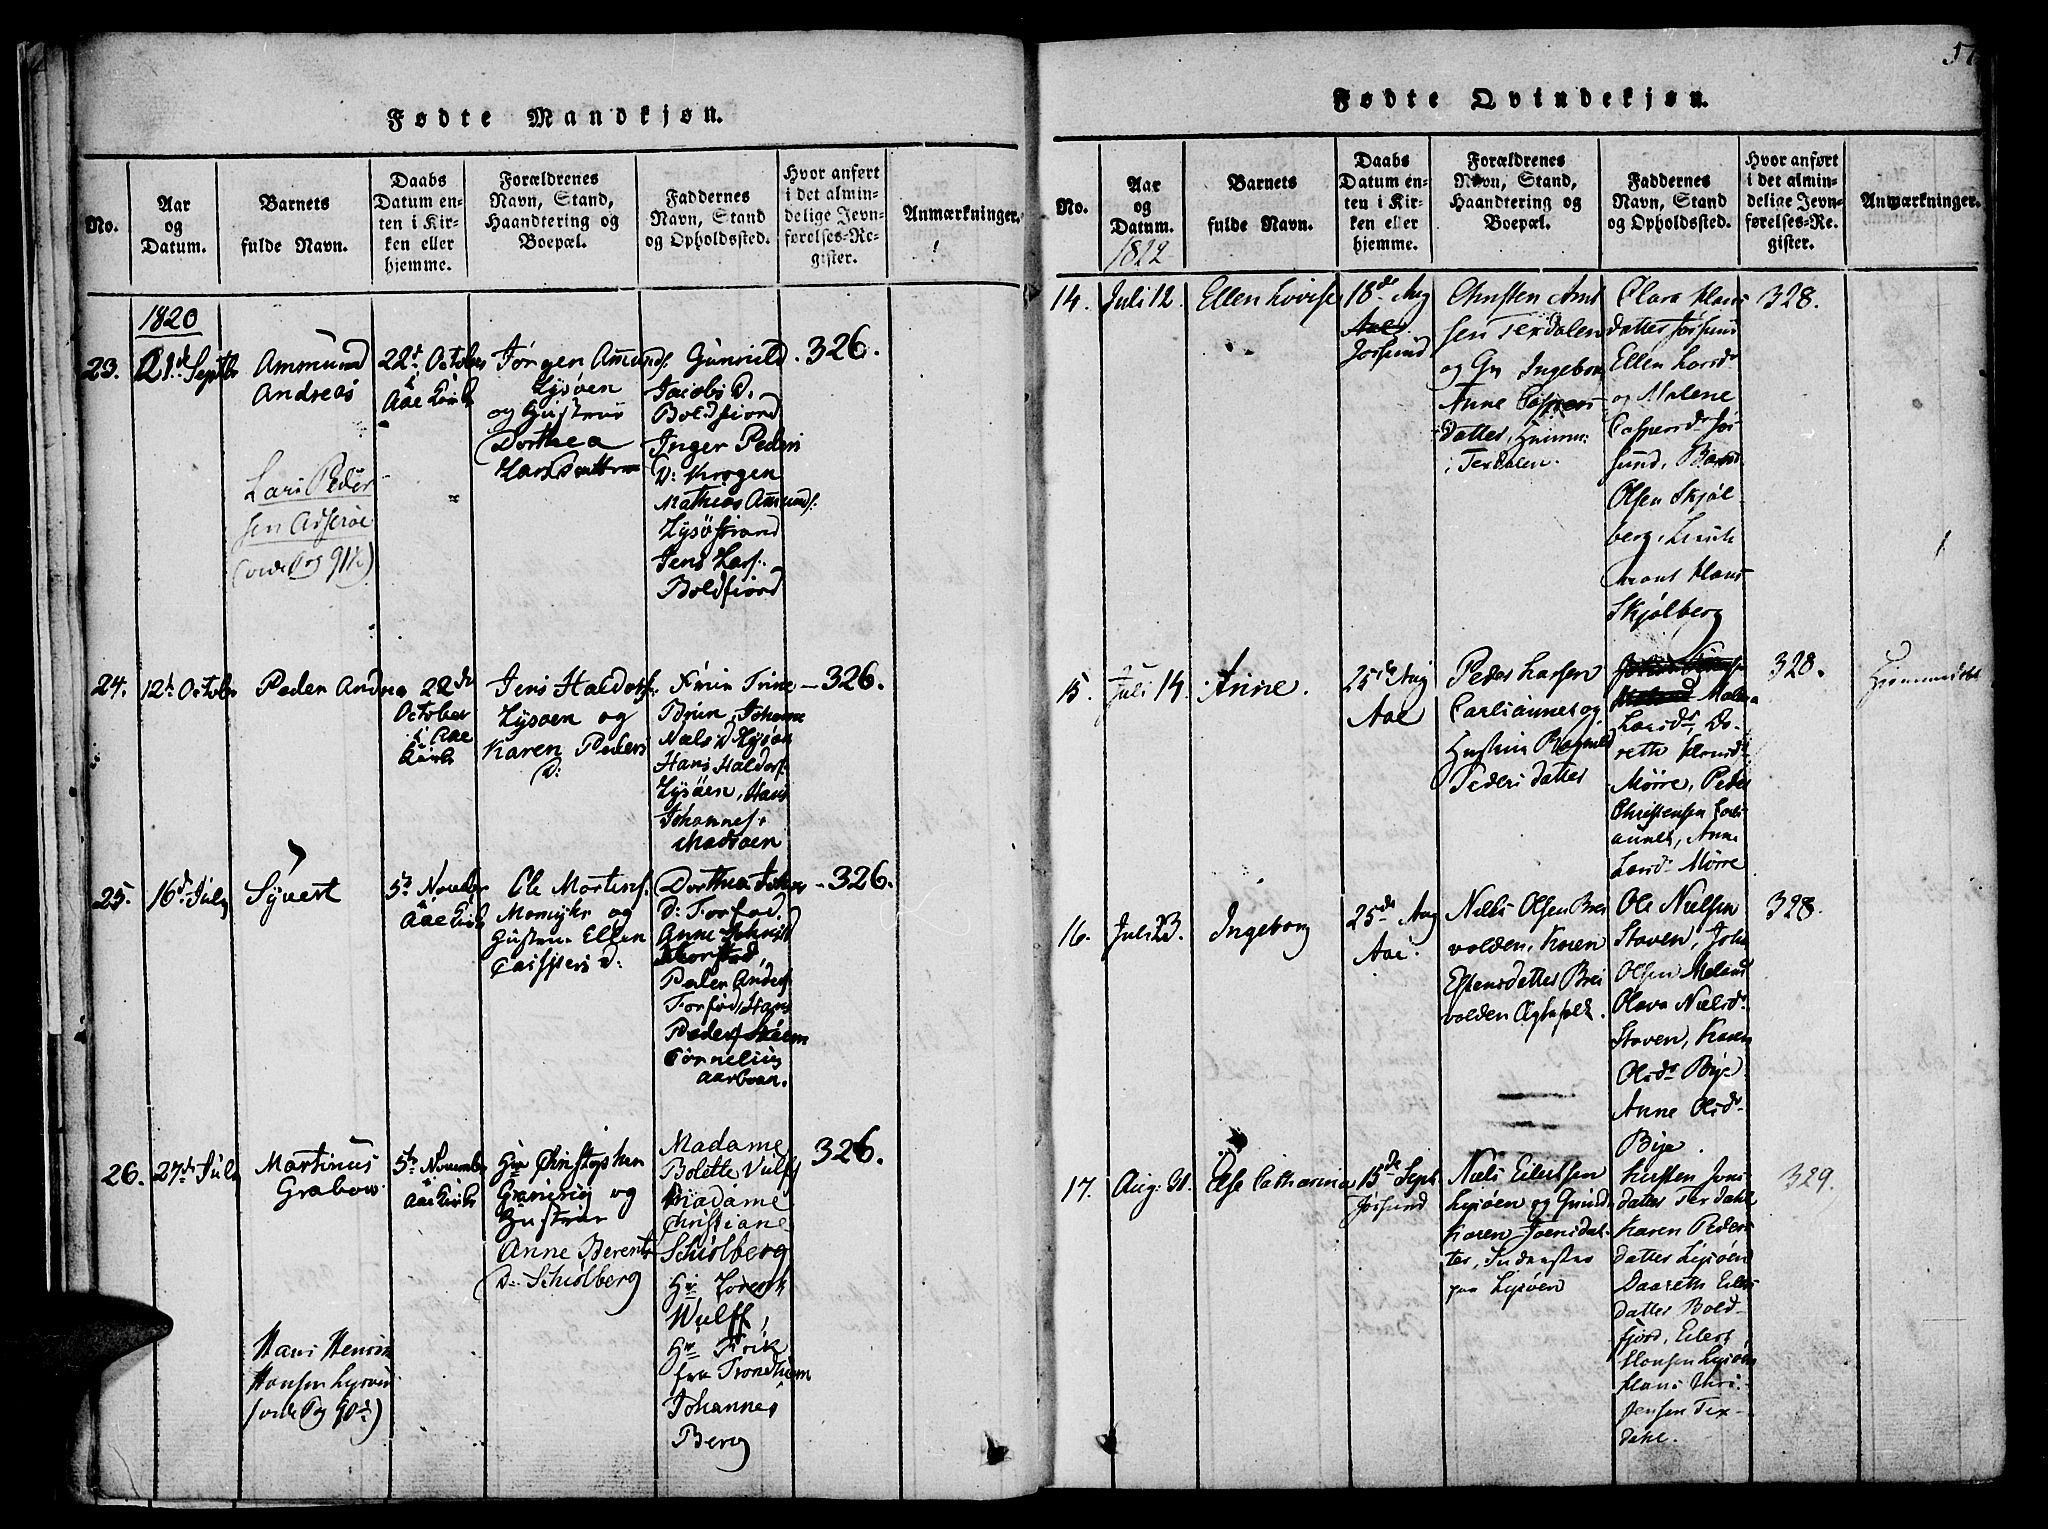 Fødte Mandkjøn.
No.
Aar
og
Datum.
Barnets
fulde Navn.
Daabs
Datum en-
ten i Kir-
ken eller
hjemme.
Forældrenes
Navn, Stand,
Haandtering og
Boepæl.
Faddernes
Navn, Stand
og Opholdssted.
Hvor anført
i det almin-
delige Jevn-
førelses-Re-
gister.
Anmærkninger.
1820
23.
21de Septbr
Ammund
Andreas
22d October
i
Aae Kirke
Jørgen Amunds.
Lysøen
og Hustrue
Dorthea
Larsdatter
Gunnild
Jacobs D.
Boldfiord
Inger Peders
D: Krogen
Mathias Amunds.
Lysøstrand
Jens Lars.
Boldfiord
326.
Lars Peder
sen Adserøe
(vide Pag 91)
24.
12t October
Peder Andrea
22de
October
i Aae
Kirke
Jens Haldors.
Lysøen og
Karen Peders
D:
Trine
Brun, Johanne
Niels D Lysøen
Hans Haldors.
Lysøen, Hans
Johannes.
Madsøen
326.
25.
16d July
Syvert
5te November
i
Aae Kirke
Ole Mortens.
Momyhr og
Hustru Ellen
Caspers D:
Dorthea Johns
D: Forfod.
Anne
Peder Anders.
Forfod, Hans
Peders. Skiem
Cornelius
Aarboan.
326.
26.
27de July
Martinus
Grabow
5te November
i
Aae Kirke
Hr Christopher
og
Hustrue
Anne Berents
D: Schiølberg
Madame
Bolette Vulff
Madame
Christiane
Schiølberg
Hr Lorentz
Wulff,
Hr Frik
fra Trondhiem
Johannes
Berg
326.
Hans Henrik
Hansen Lysøen
(vide Pag 90)
57
Fødte Qvindekjøn.
No.
Aar
og
Datum.
1822
Barnets
fulde Navn.
Daabs
Datum en-
ten i Kir-
ken eller
hjemme.
Forældrenes
Navn, Stand,
Haandtering og
Boepæl.
Faddernes
Navn, Stand
og Opholdssted.
Hvor anført
i det almin-
delige Jevn-
førelses-Re-
gister.
Anmærkninger.
14.
Juli 12.
Ellen Lovise
18de Aug
Aae.
Jøssund
Christen Ant
sen Terdalen
og Ingeborg
Anne Caspers
datter,
i Terdalen.
Clara Hans
datter Jøssund
Ellen Larsdr
og Malene
Caspersdr Jøs
sund,
Olsen Skjøl-
berg,
Hans
Skjølberg
328.
15.
Juli 14.
Anne.
25de Aug
Aae
Peder Larsen
Carlsaunet og
Hustrue Ragnild
Peders datter
Larsdr, Do-
reth Hansdr
Mørre, Peder
Christensen Carls
aunet, Anne
Larsdr Mørre
328.
16.
Juli 23.
Ingeborg
25de Aug
Aae.
Niels Olsen Brei
volden, Karen
Estensdatter Brei
volden Ægtefolk.
Ole Nielsen
Staven, John
Olsen Meland
Olava Nielsdr
Staven, Karen
Olsdr Bye
Anne Olsdr
Bye.
328.
17.
Aug. 31.
Else Catharina
15de Sept.
Jøssund
Niels Eilertsen
Lysøen og
Karen Joensdat-
ter, Inderster
paa Lysøen
Kirsten Jons
datter Terdahl
Karen Peders
datter Lysøen
Daareth Eilers
datter Bold-
fjord, Eilert
Hansen Lysøen
Hans Chri-
stensen Tex-
dahl.
329.